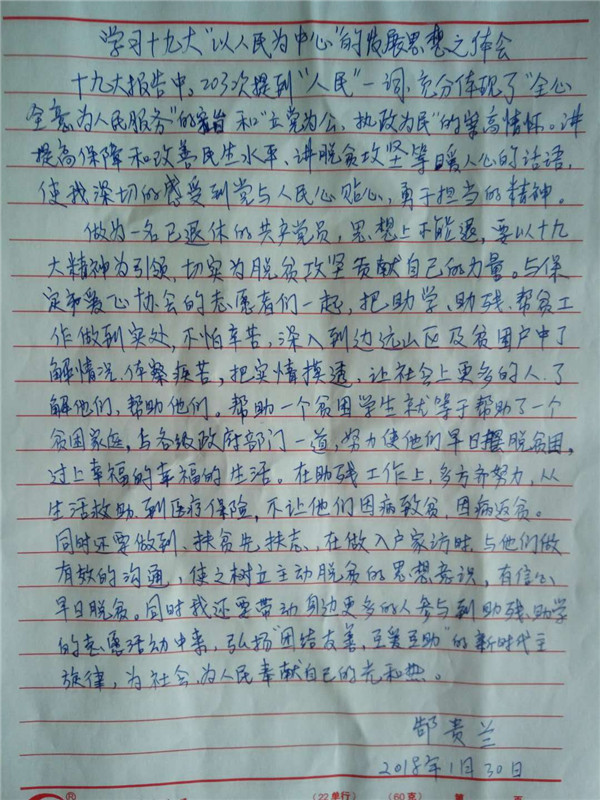 学习十九大“以人民为中心”的发展思想之体会
十九大报告中，203次提到“人民”一词，充分体现了“全心
全意为人民服务”的宗旨和“立党为公、执政为民”的崇高情怀。讲
提高保障和改善民生水平、讲脱贫攻坚等暖人心的话语，
使我深切的感受到党与人民心贴心，勇于担当的精神。
做为一名已退休的共产党员，思想上不能退，要以十九
大精神为引领，切实为脱贫攻坚贡献自己的力量。与保
定市爱心协会的志愿者们一起，把助学、助残、帮贫工
作做到实处，不怕辛苦，深入到边远山区及贫困户中了
解情况，体察疾苦，把实情摸透，让社会上更多的人了
解他们，帮助他们。帮助一个贫困学生就等于帮助了一个
贫困家庭，与各级政府部门一道，努力使他们早日摆脱贫困，
过上幸福的幸福的生活。在助残工作上，多方并努力，从
生活救助到医疗保险，不让他们因病致贫，因病返贫。
同时还要做到，扶贫先扶志，在做入户家访时，与他们做
有效的沟通，使之树立主动脱贫的思想意识，有信心
早日脱贫。同时我还要带动身边更多的人参与到助残、助学
的志愿活动中来，弘扬“团结友善，互爱互助”的新时代主
旋律，为社会、为人民奉献自己的光和热。
郜贵兰
2018年1月30日
® (22单行) (60克) 第 页